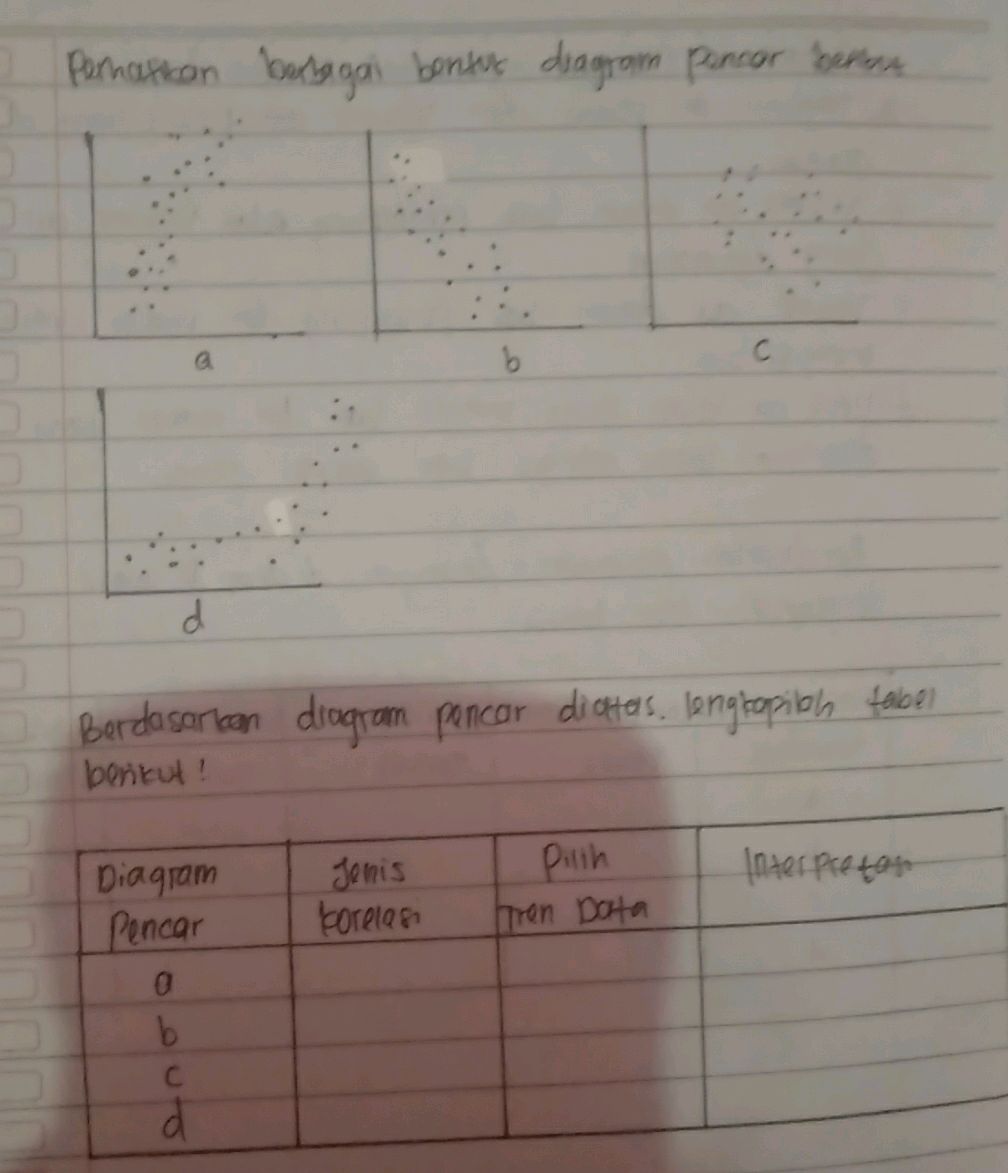 Perhatikan berbagai bentuk diagram pencar berikut
a b c
d
Berdasarkan diagram pencar diatas. lengkapilah tabel
berikut!
Diagram Jenis Pilih Interpretasi
Pencar korelasi Tren Data
a
b
c
d